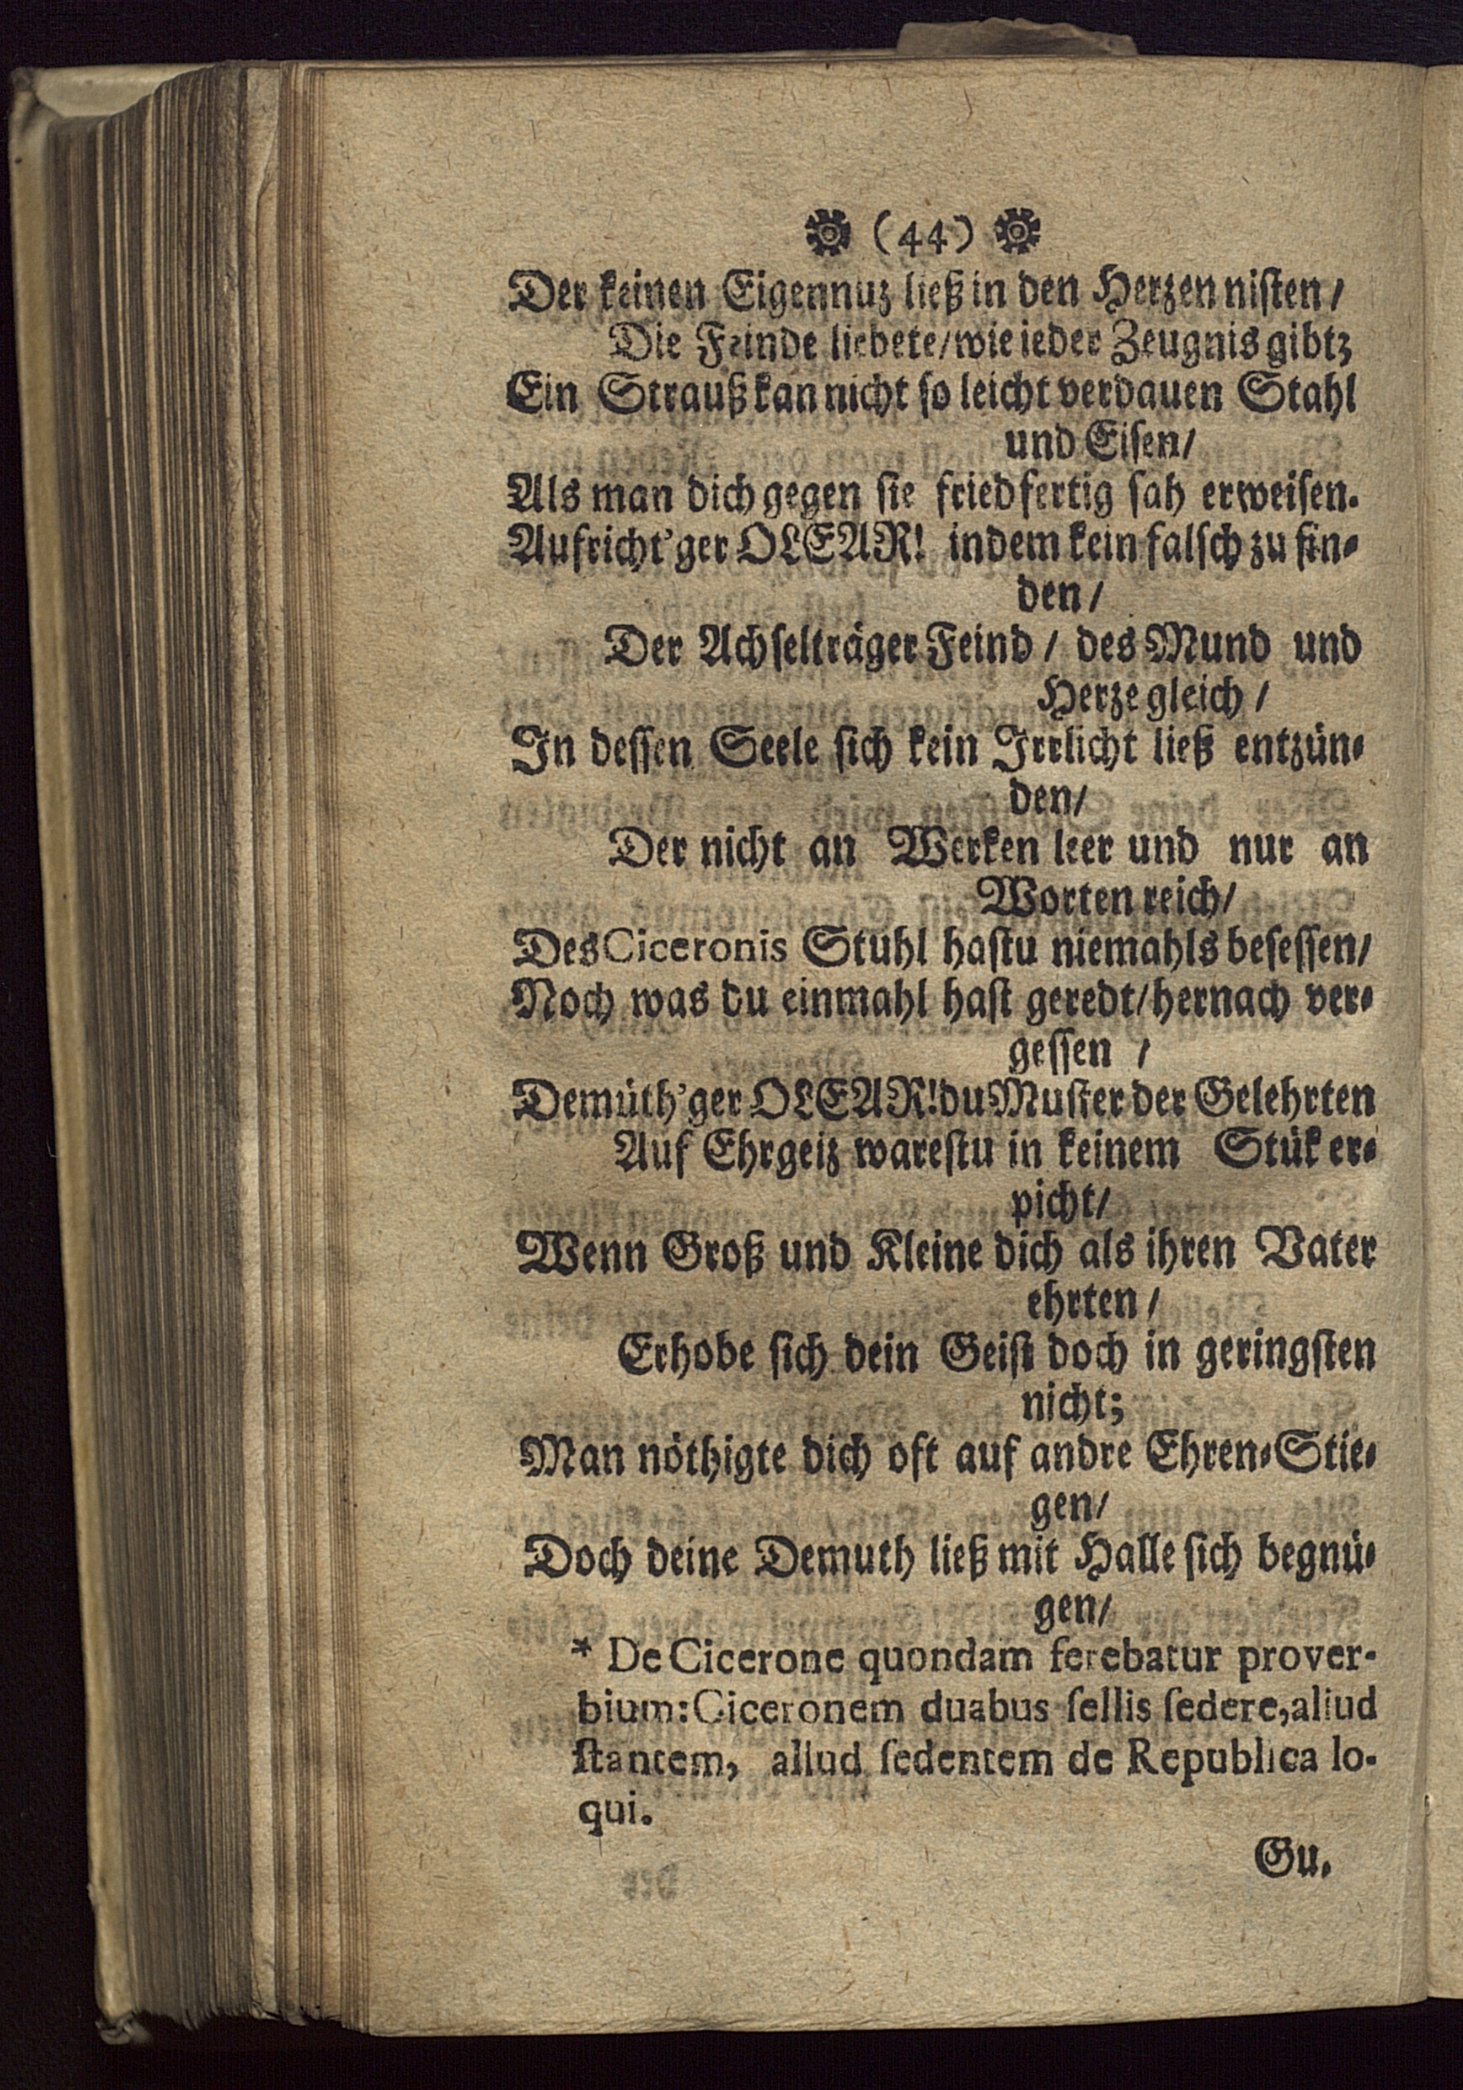 (44)
Der keinen Eigennuz ließ in den Herzen nisten /
Die Feinde liebete / wie ieder Zeugnis gibt;
Ein Strauß kan nicht so leicht verdauen Stahl
und Eisen /
Als man dich gegen sie friedfertig sah erweisen.
Aufricht'ger OLEAR! indem kein falsch zu fin-
den /
Der Achselträger Feind / des Mund und
Herze gleich /
In dessen Seele sich kein Irrlicht ließ entzün-
den /
Der nicht an Werken leer und nur an
Worten reich /
Des Ciceronis Stuhl hastu niemahls besessen /
Noch was du einmahl hast geredt / hernach ver-
gessen /
Demüth'ger OLEAR! du Muster der Gelehrten
Auf Ehrgeiz warestu in keinem Stük er-
picht /
Wenn Groß und Kleine dich als ihren Vater
ehrten /
Erhobe sich dein Geist doch in geringsten
nicht;
Man nöthigte dich oft auf andre Ehren-Stie-
gen /
Doch deine Demuth ließ mit Halle sich begnü-
gen /
* De Cicerone quondam ferebatur prover-
bium: Ciceronem duabus sellis sedere, aliud
stantem, aliud sedentem de Republica lo-
qui.
Gu-